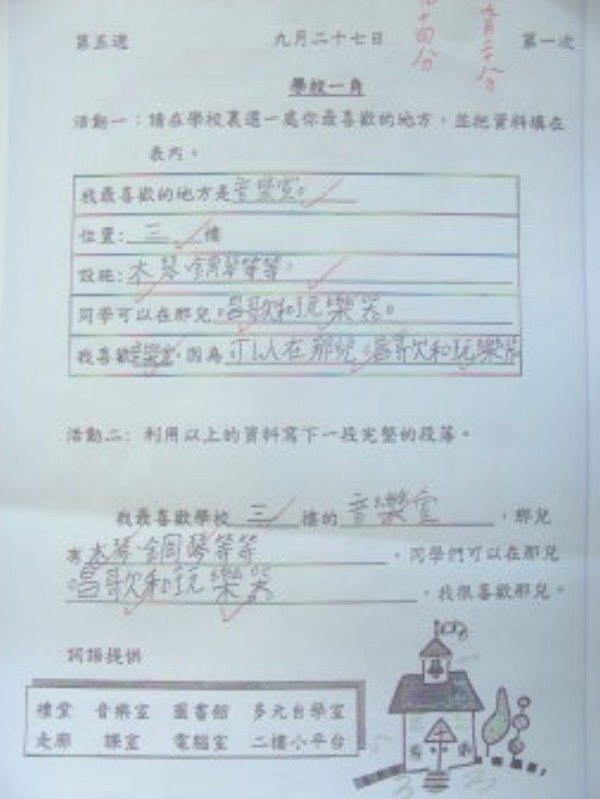 第五週 九月二十七日 第一次
十四分
學校一角
活動一：請在學校裏選一處你最喜歡的地方，並把資料填在
表內。
我最喜歡的地方是音樂室。
位置：三樓
設施：木琴、鋼琴等等。
同學可以在那兒唱歌和玩樂器。
我喜歡音樂室，因為可以在那兒唱歌和玩樂器
活動二：利用以上的資料寫下一段完整的段落。
我最喜歡學校三樓的音樂室，那兒
有木琴、鋼琴等等。同學們可以在那兒
唱歌和玩樂器。我很喜歡那兒。
詞語提供
禮堂 音樂室 圖書館 多元自學室
走廊 課室 電腦室 二樓小平台